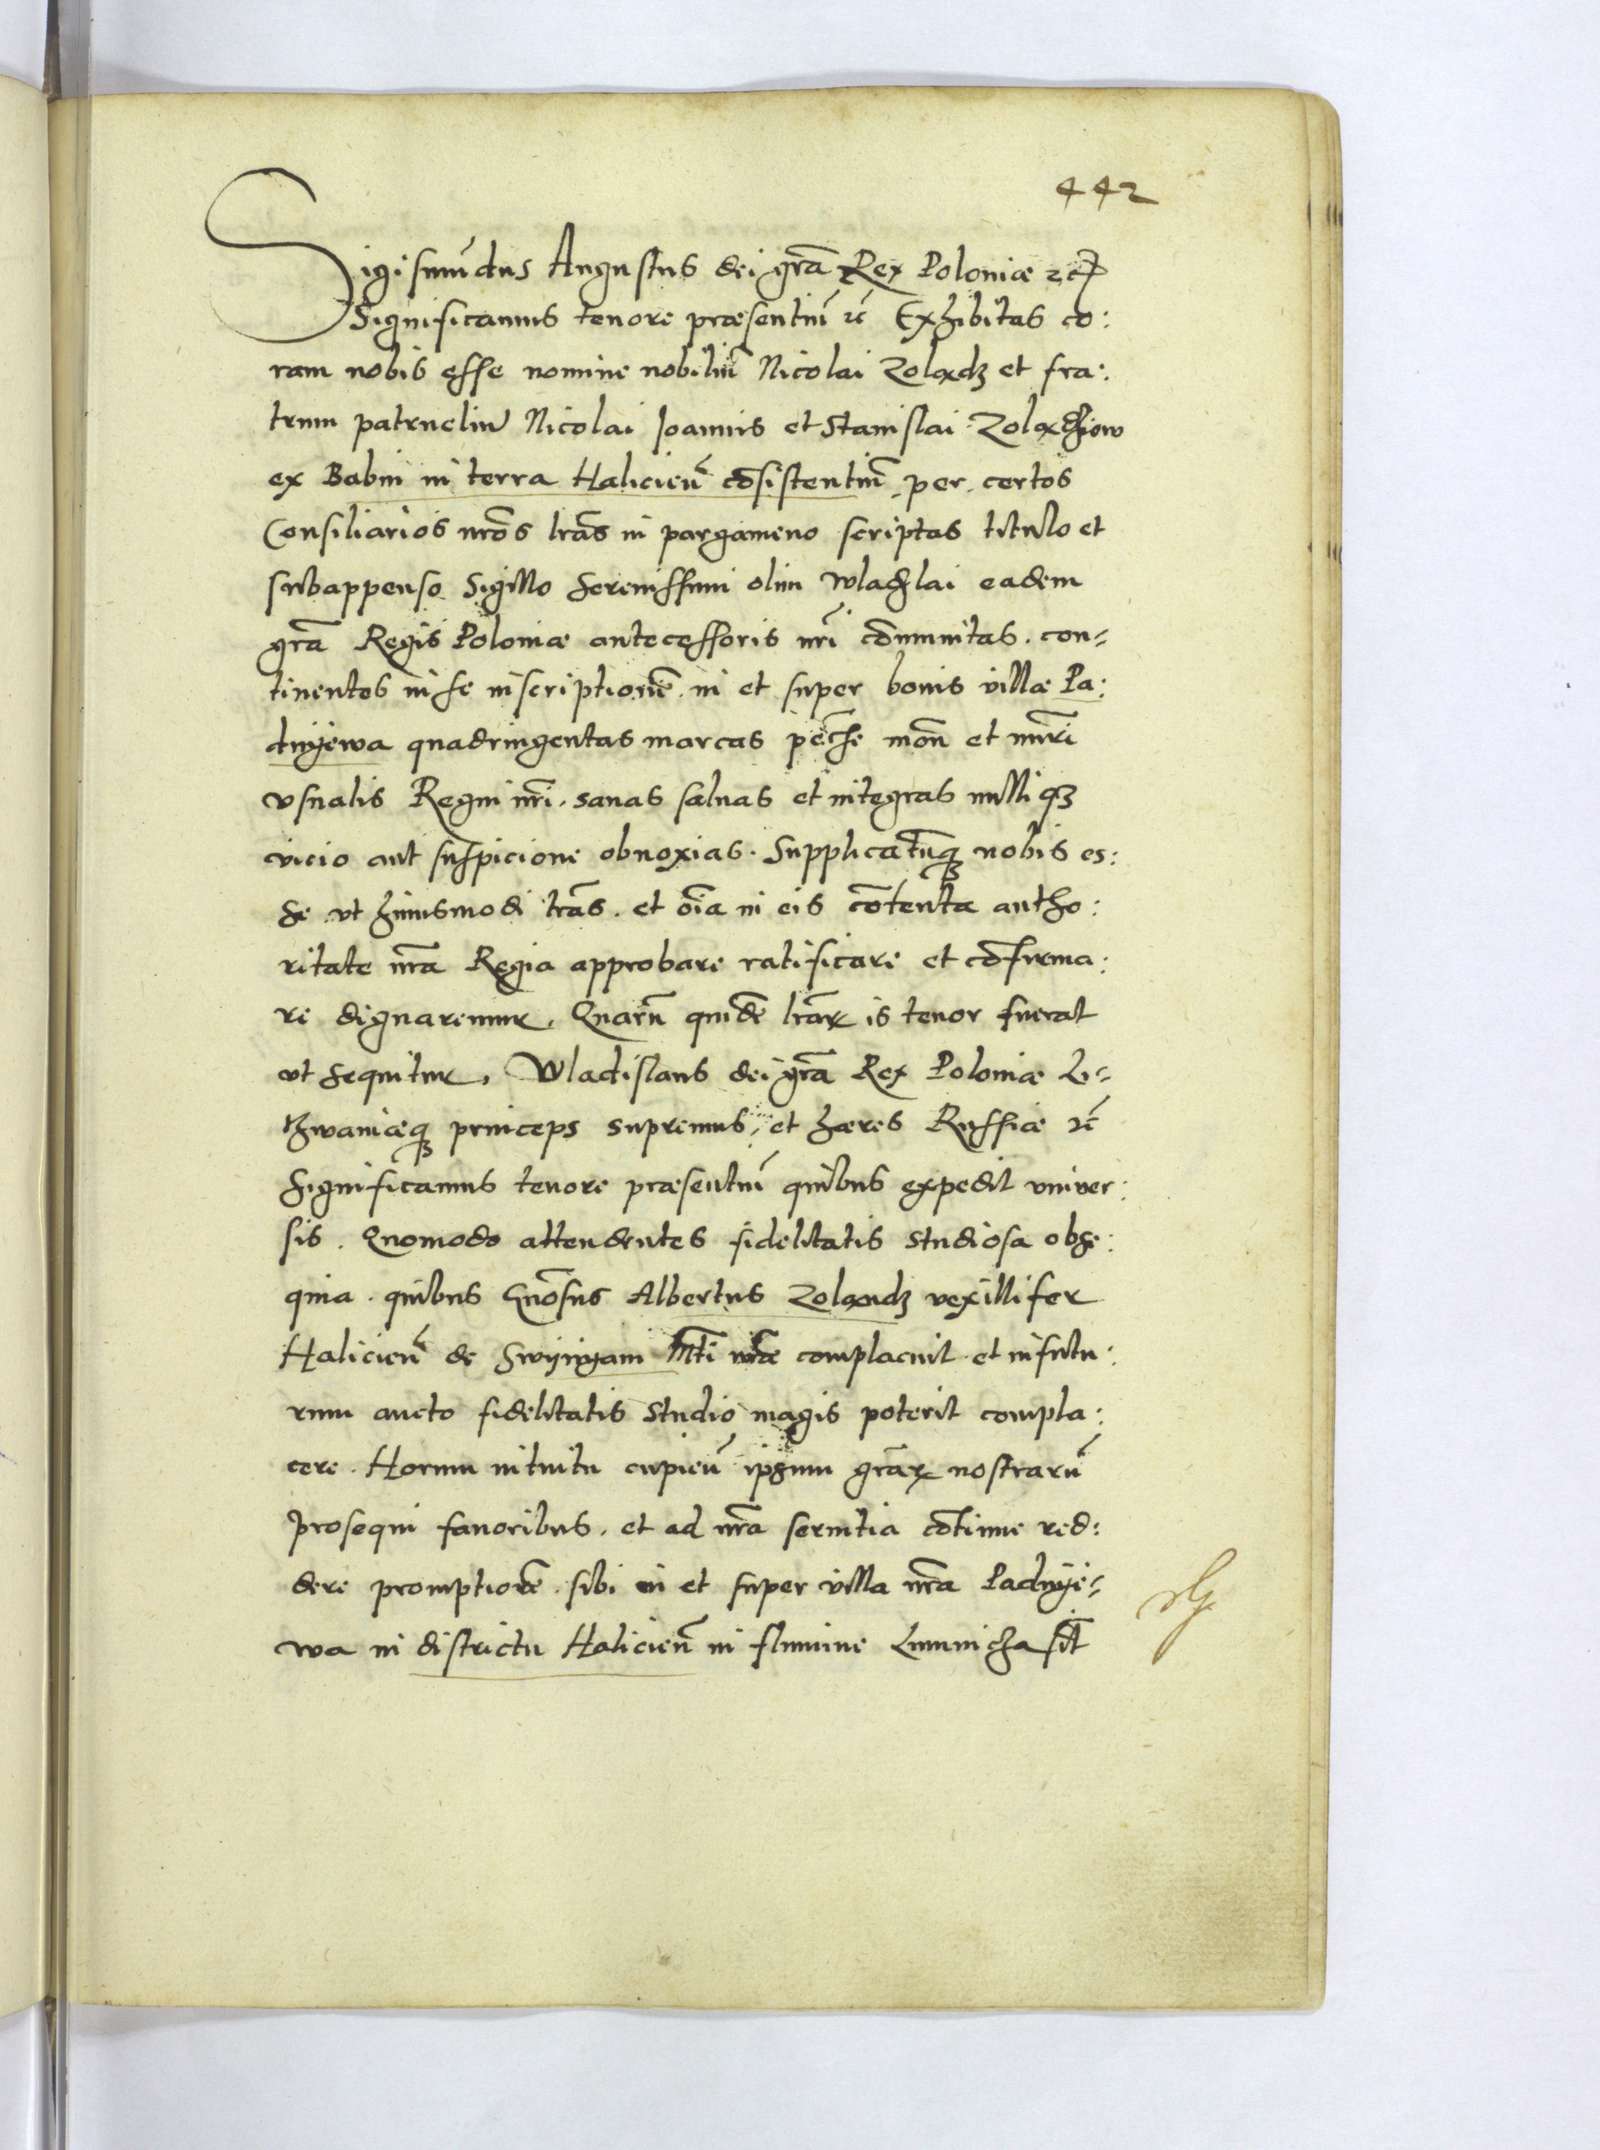 442
Sigismūdus Augustus dei grā Rex Poloniæ ꝛcꝭ
Significamus tenore præsentiū ꝛc̄ Exhibitas co:
ram nobis esse nomine nobiliū Nicolai Zolądz et fra:
trum patrueliū Nicolai Joannis et Stanislai Zolądziow
ex Babin in terra Halicieñ cōsistentiū per certos
Consiliarios nrōs lrās in pargameno scriptas titulo et
subappenso Sigillo serenissimi olim Wladslai eadem
grā Regis Poloniæ antecessoris nrī cōmunitas. con-
tinentes in se inscriptionē in et super bonis villæ Pa:
dnyewa quadringentas marcas pēche mon̄ et nūri
vsualis Regni nrī. sanas saluas et integras nulliqꝫ
vicio aut suspicione obnoxias. Supplicatūqꝫ nobis es:
se vt huiusmodi lrās. et oīa in eis cōtenta autho:
ritate nrā Regia approbare ratificare et cōfirma:
re dignaremur. Quarū quidē lrāꝝ is tenor fuerat
vt sequitur, Wladislaus dei grā Rex Poloniæ Li-
thwaniæqꝫ princeps supremus, et hæres Russiæ ꝛc̄
Significamus tenore præsentiū quibus expedit vniuer:
sis. Quomodo attendentes fidelitatis studiosa obse:
quia. quibus Gnōsus Albertus Zolandz vexillifer
Halicieñ de Swyrzani Mti nrāe complacuit et in futu:
rum aucto fidelitatis studio magis poterit compla:
cere. Horum intuitu cupieñ ipsum grāꝝ nostrarū
prosequi fauoribus. et ad nrā seruitia cōtinue red:
dere promptiorē. sibi in et super villa nrā Padnye-
wa in districtu Halicieñ in flumine Lumnicha sit̄